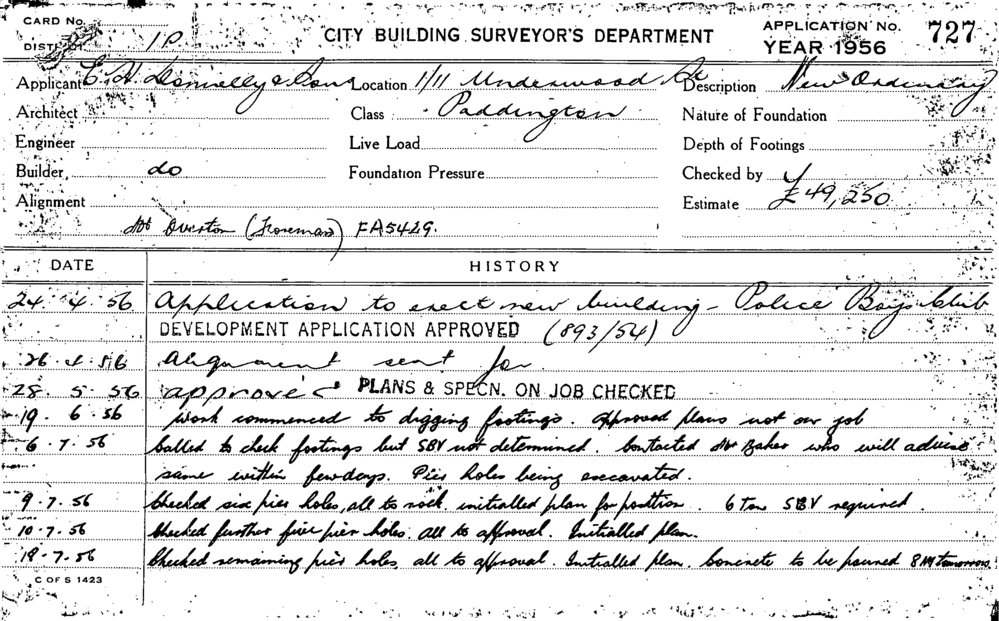 CARD No.
DIST. OF 1P
CITY BUILDING SURVEYOR'S DEPARTMENT
APPLICATION No. 727
YEAR 1956
Applicant E. H. Donnelly & Sons Location 1/11 Underwood St Description New Ordinary
Architect Class Paddington Nature of Foundation
Engineer Live Load Depth of Footings
Builder, do Foundation Pressure Checked by
Alignment Estimate £49,250
Mr Overton (Foreman) FA5429.
DATE HISTORY
24 4 56 Application to erect new building - Police Boys Club
DEVELOPMENT APPLICATION APPROVED (893/54)
26.4.56 Alignment sent for
28. 5. 56 approved PLANS & SPECN. ON JOB CHECKED
19. 6. 56 Work commenced to digging footings. Approved plans not on job
6.7.56 Called to check footings but SBV not determined. Contacted Mr Baker who will advise
same within few days. Pier holes being excavated.
9.7.56 Checked six pier holes, all to rock, initialled plan for position. 6 Ton SBV required.
10.7.56 Checked further five pier holes. all to approval. Initialled plan.
18.7.56 Checked remaining pier holes, all to approval. Initialled plan. Concrete to be poured 8 AM tomorrow.
C OF S 1423